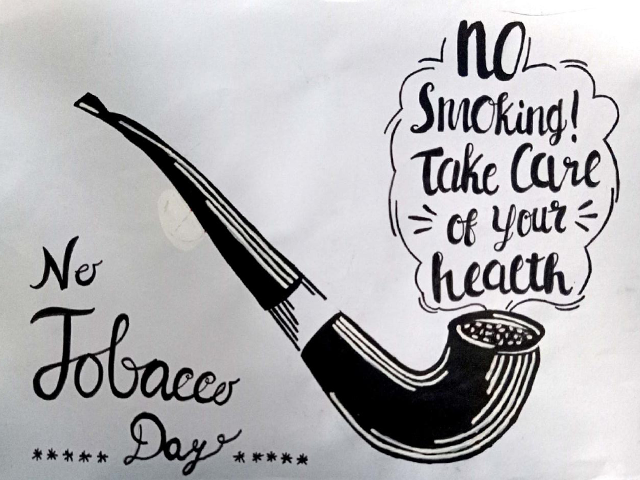 No
Smoking!
Take Care
of your
health
No
Tobacco
***** Day *****